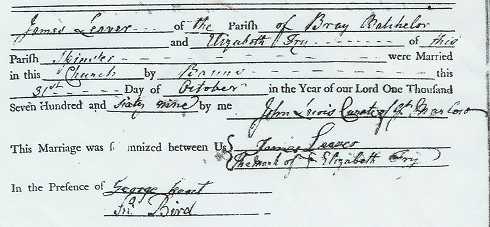 James Leaver of the Parish of Bray Batchelor
and Elizabeth Fry of this
Parish Spinster were Married
in this Church by Banns this
31st Day of October in the Year of our Lord One Thousand
Seven Hundred and sixty nine by me John Lewis Curate of Gt Marlow
This Marriage was solemnized between Us James Leaver
The mark of Elizabeth Fry
In the Presence of George
Jno Bird